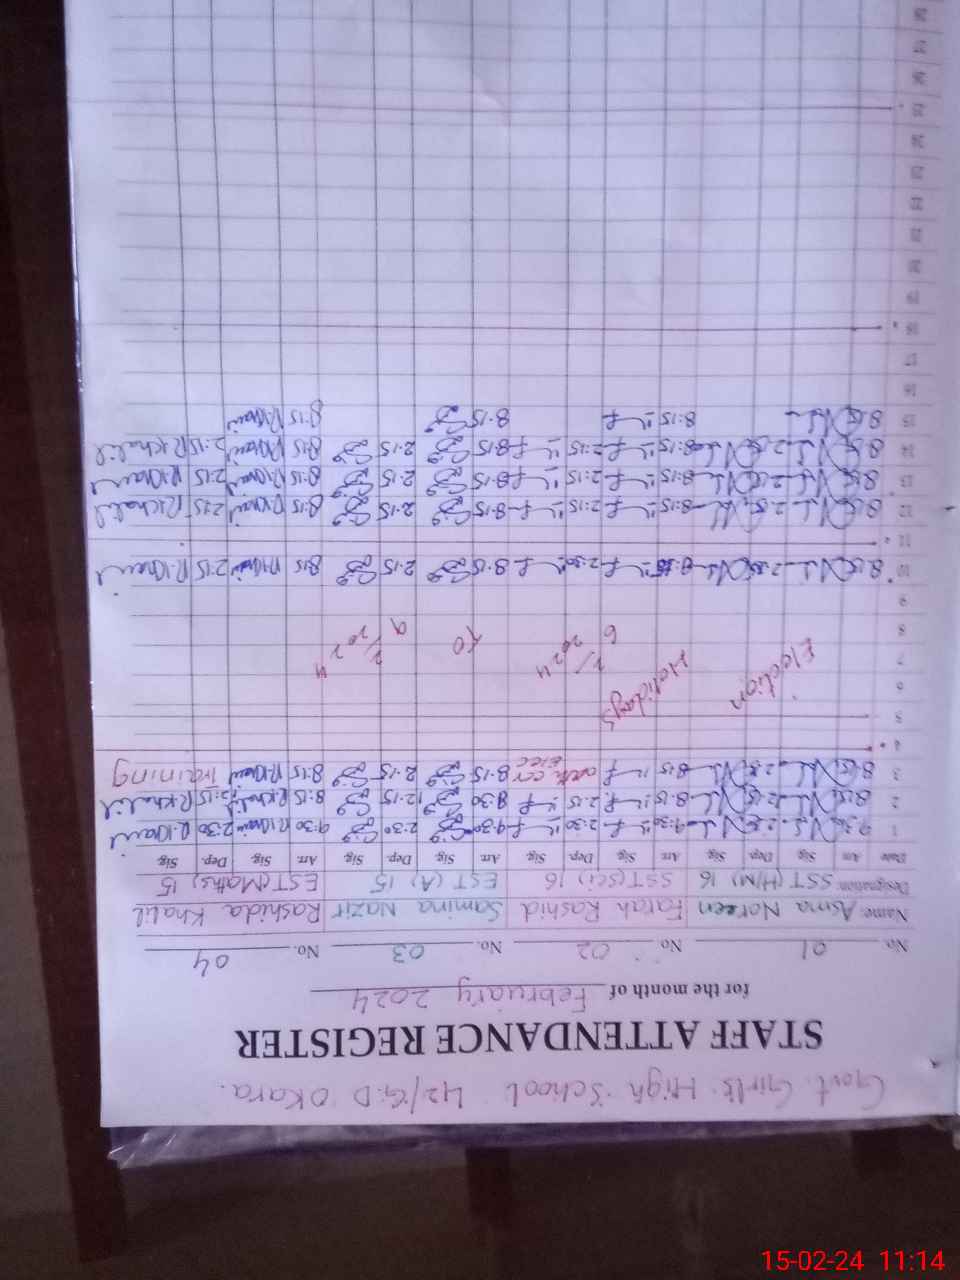 Govt. Girls High School 42/G.D Okara.
STAFF ATTENDANCE REGISTER
for the month of February 2024
No. 01 No. 02 No. 03 No. 04
Name: Asma Noreen Farah Rashid Samina Nazir Rashida Khalil
Designation: SST (H/M) 16 SST(Sci) 16 EST (A) 15 EST(Maths) 15
Date Arr. Sig. Dep. Sig. Arr. Sig. Dep. Sig. Arr. Sig. Dep. Sig. Arr. Sig. Dep. Sig.
1 9:30 2:30 9:30 2:30 9:30 2:30 9:30 2:30 R.Khalil
2 8:15 12:15 8:15 2:15 8:30 12:15 8:15 R.Khalil 12:15 R.Khalil
3 8:15 2:15 8:15 8:15 2:15 8:15 R.Khalil Training
4
5
6 Election Holidays 6/2/2024 to 9/2/2024
7
8
9
10 8:15 2:15 8:15 2:30 8:15 2:15 8:15 R.Khalil 2:15 R.Khalil
11
12 8:15 2:15 8:15 2:15 8:15 2:15 8:15 R.Khalil 2:15 R.Khalil
13 8:15 2:15 8:15 2:15 8:15 2:15 8:15 R.Khalil 2:15 R.Khalil
14 8:15 2:15 8:15 2:15 8:15 2:15 8:15 R.Khalil 2:15 R.Khalil
15 8:15 8:15 8:15 8:15 R.Khalil
16
17
18
19
20
21
22
23
24
25
26
27
28
15-02-24 11:14